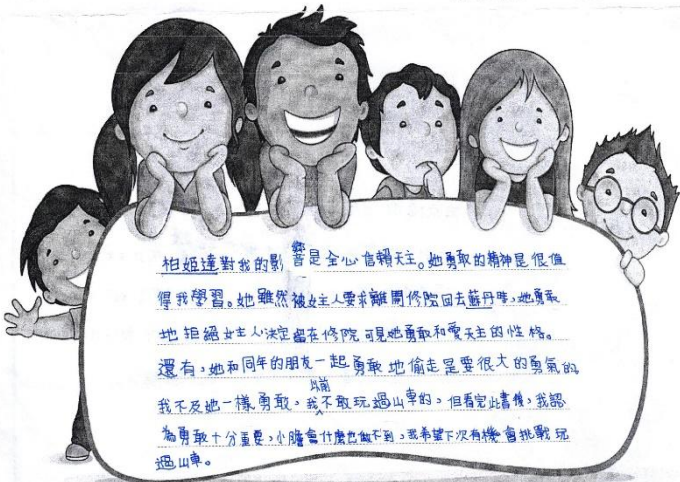 柏姬達對我的影響是全心信賴天主。她勇敢的精神是很值
得我學習。她雖然被女主人要求離開修院回去蘇丹時，她勇敢
地拒絕女主人決定留在修院可見她勇敢和愛天主的性格。
還有，她和同年的朋友一起勇敢地偷走是要很大的勇氣的，
我不及她一樣勇敢，我以前不敢玩過山車的，但看完此書後，我認
為勇敢十分重要，小膽會什麼也做不到，我希望下次有機會挑戰玩
過山車。